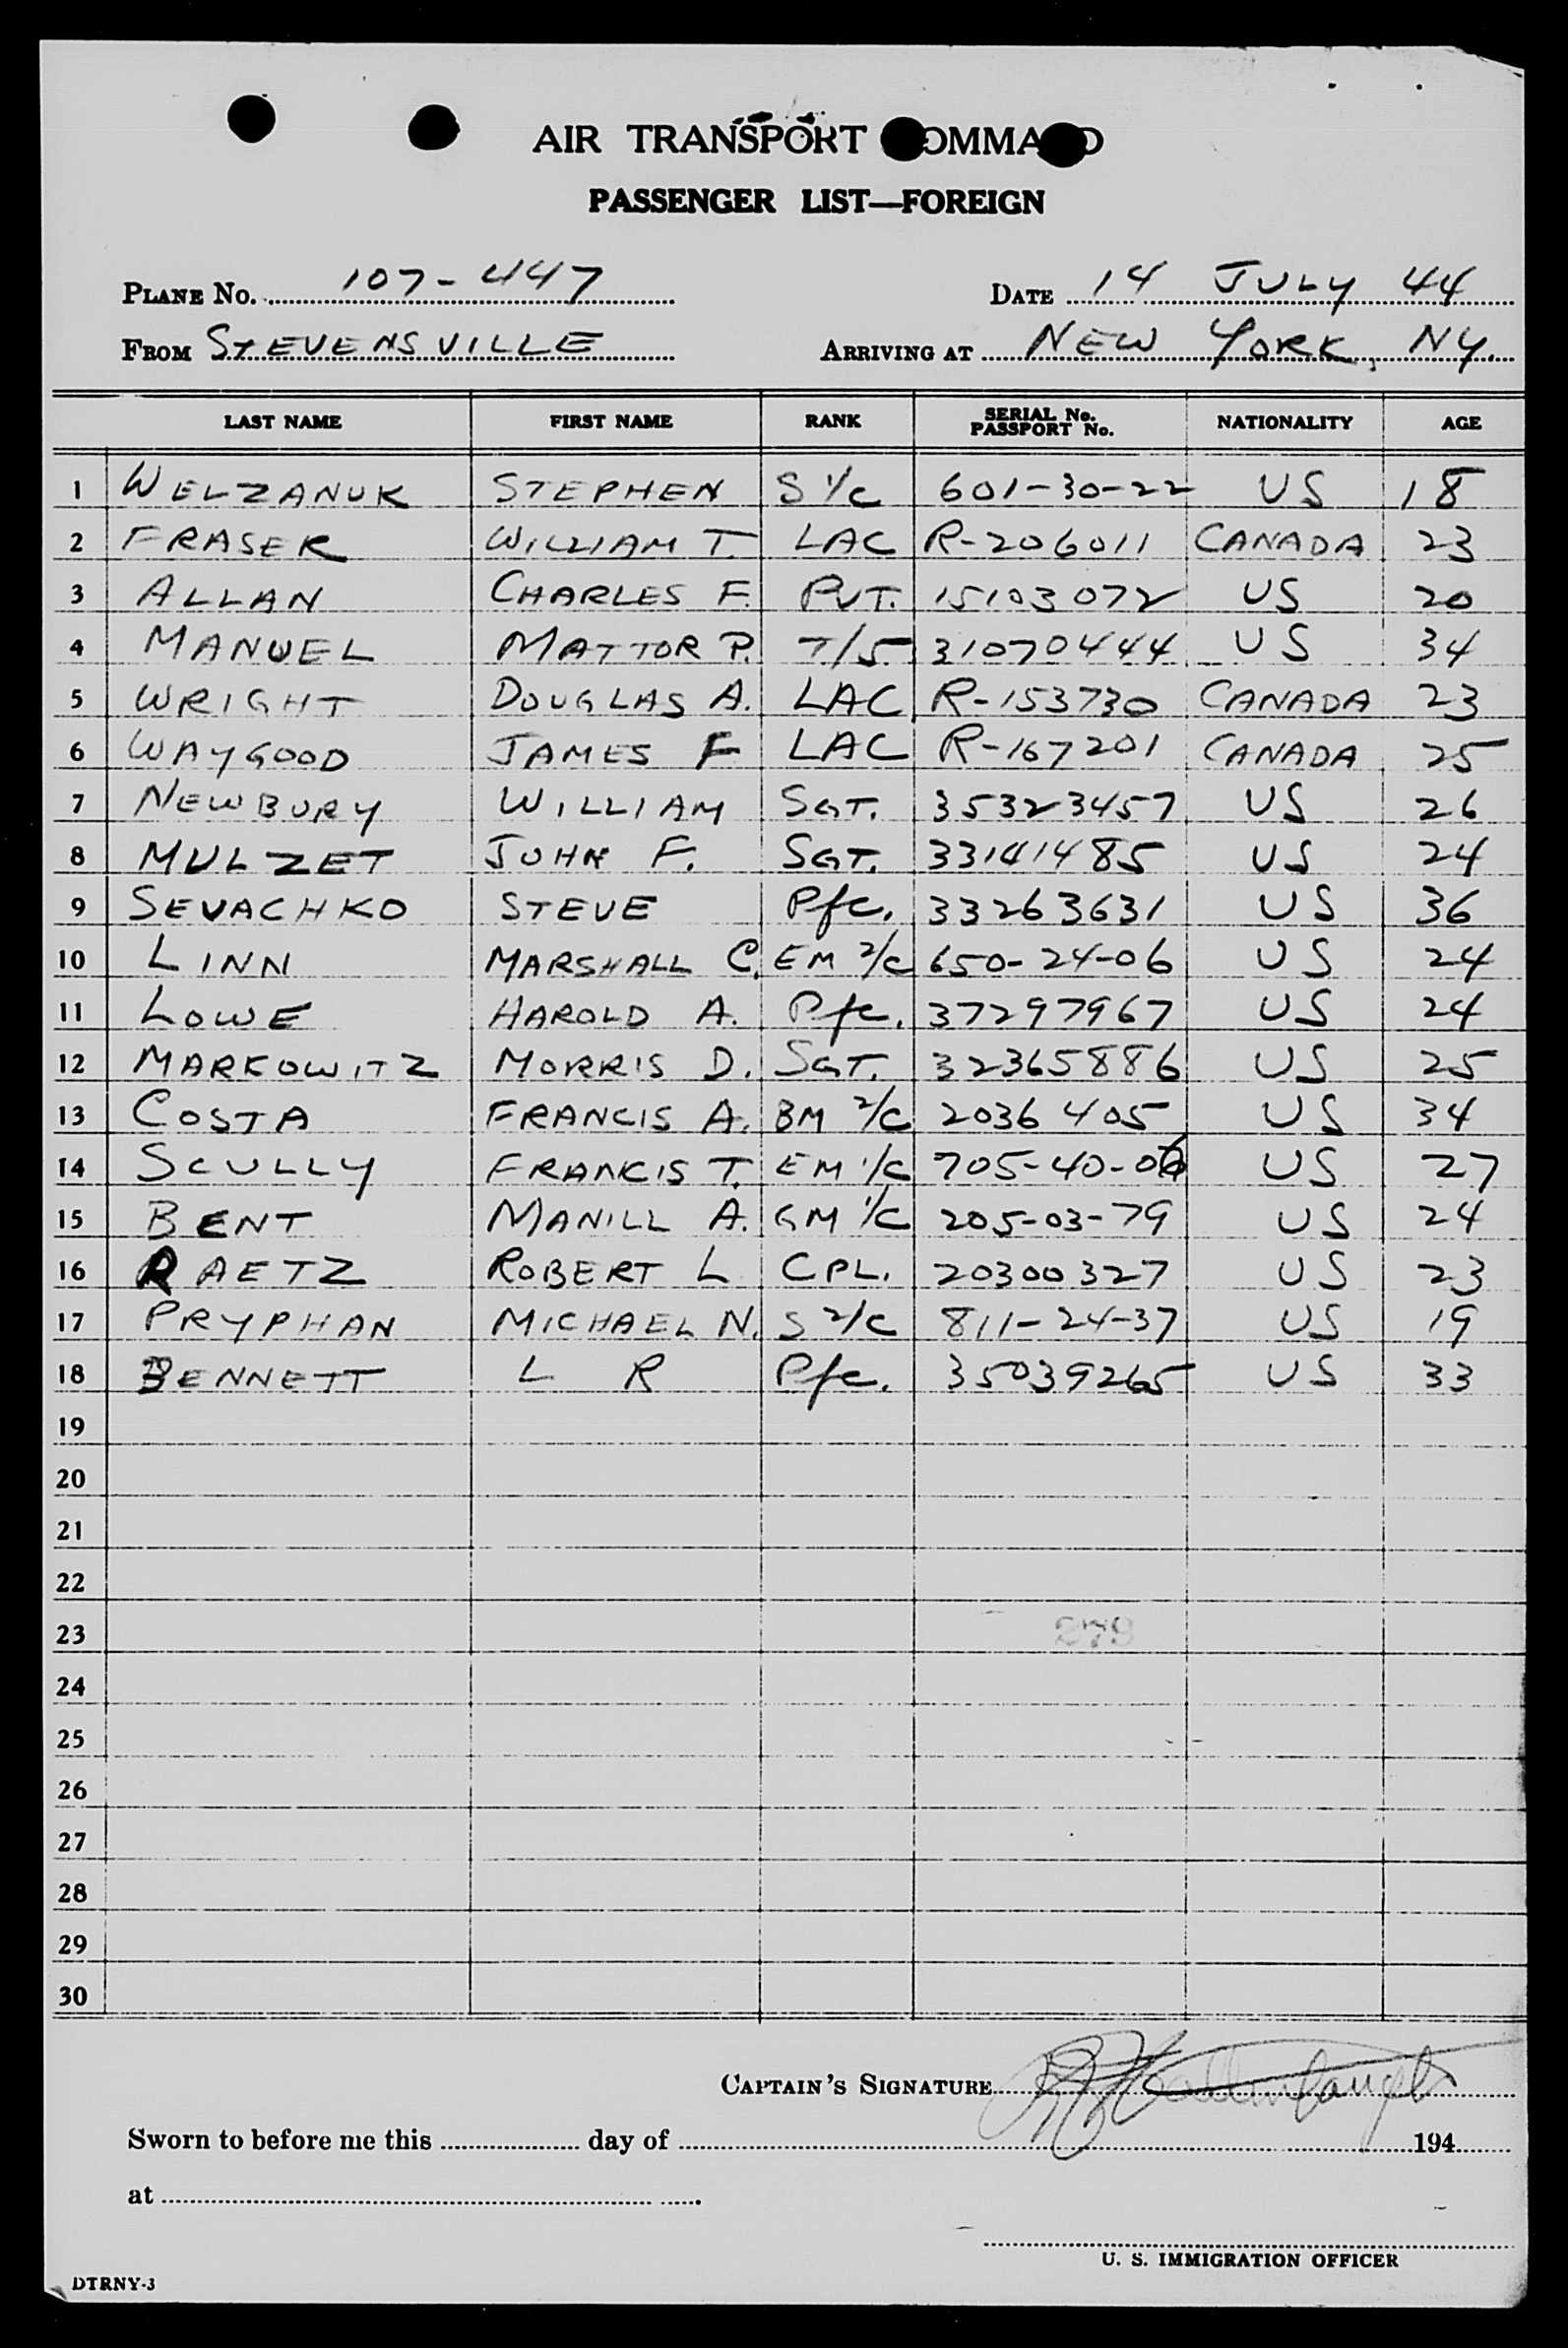 AIR TRANSPORT COMMAND
PASSENGER LIST—FOREIGN
PLANE No. 107-447 DATE 14 JULY 44
FROM STEVENSVILLE ARRIVING AT NEW YORK, NY.
LAST NAME FIRST NAME RANK SERIAL No. PASSPORT No. NATIONALITY AGE
1 WELZANUK STEPHEN S 1/C 601-30-22 US 18
2 FRASER WILLIAM T. LAC R-206011 CANADA 23
3 ALLAN CHARLES F. PVT. 15103072 US 20
4 MANUEL MATTOR P. T/5 31070444 US 34
5 WRIGHT DOUGLAS A. LAC R-153730 CANADA 23
6 WAYGOOD JAMES F LAC R-167201 CANADA 25
7 NEWBURY WILLIAM SGT. 35323457 US 26
8 MULZET JOHN F. SGT. 33141485 US 24
9 SEVACHKO STEVE Pfc. 33263631 US 36
10 LINN MARSHALL C. EM 2/C 650-24-06 US 24
11 LOWE HAROLD A. Pfc. 37297967 US 24
12 MARKOWITZ MORRIS D. SGT. 32365886 US 25
13 COSTA FRANCIS A. BM 2/C 2036405 US 34
14 SCULLY FRANCIS T. EM 1/C 705-40-06 US 27
15 BENT MANILL A. GM 1/C 205-03-79 US 24
16 RAETZ ROBERT L CPL. 20300327 US 23
17 PRYPHAN MICHAEL N. S 2/C 811-24-37 US 19
18 BENNETT L R Pfc. 35039265 US 33
19
20
21
22
23 279
24
25
26
27
28
29
30
CAPTAIN'S SIGNATURE
Sworn to before me this day of 194
at
U. S. IMMIGRATION OFFICER
DTRNY-3